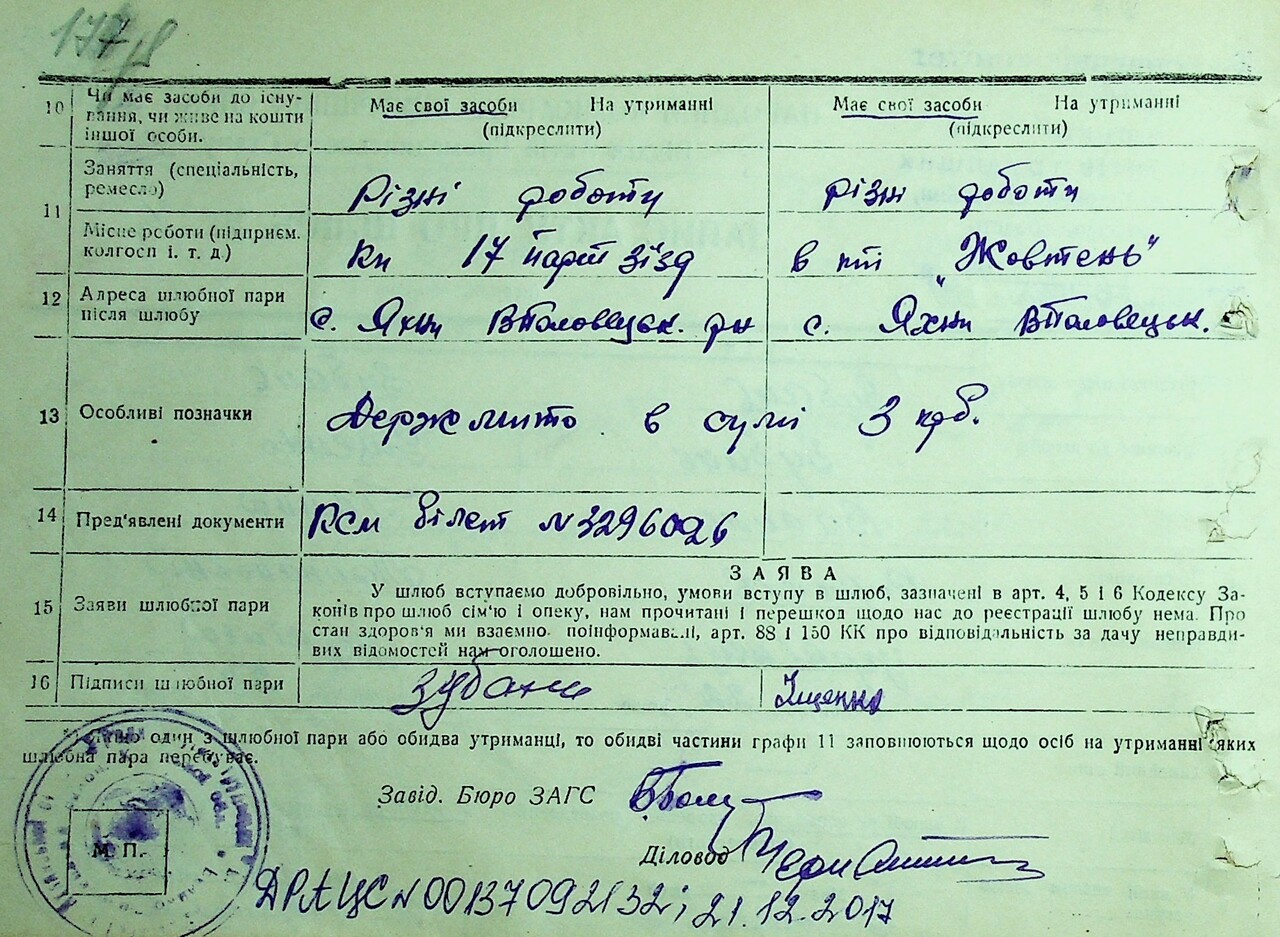 177
10 Чи має засоби до існу-
вання, чи живе на кошти
іншої особи.
Має свої засоби На утриманні
(підкреслити)
Має свої засоби На утриманні
(підкреслити)
11 Заняття (спеціальність,
ремесло)
Різні роботи
різні роботи
Місце роботи (підприєм.
колгосп і. т. д.)
кп 17 парт зїзд
в "Жовтень"
12 Адреса шлюбної пари
після шлюбу
с. Яхни ВПоловецьк. рн
с. Яхни ВПоловецьк.
13 Особливі позначки
Держмито в сумі 3 крб.
14 Пред'явлені документи
КСМ білет N 3296026
15 Заяви шлюбної пари
ЗАЯВА
У шлюб вступаємо добровільно, умови вступу в шлюб, зазначені в арт. 4, 5 і 6 Кодексу За-
конів про шлюб сім'ю і опеку, нам прочитані і перешкод щодо нас до реєстрації шлюбу нема. Про
стан здоров'я ми взаємно поінформавалі, арт. 88 і 150 КК про відповідальність за дачу неправди-
вих відомостей нам оголошено.
16 Підписи шлюбної пари
Зубань
Іщенко
Якщо один з шлюбної пари або обидва утриманці, то обидві частини графи 11 заповнюються щодо осіб на утриманні яких
шлюбна пара перебуває.
Завід. Бюро ЗАГС
М. П.
Діловод
ДРАЦС N 00137092132; 21.12.2017